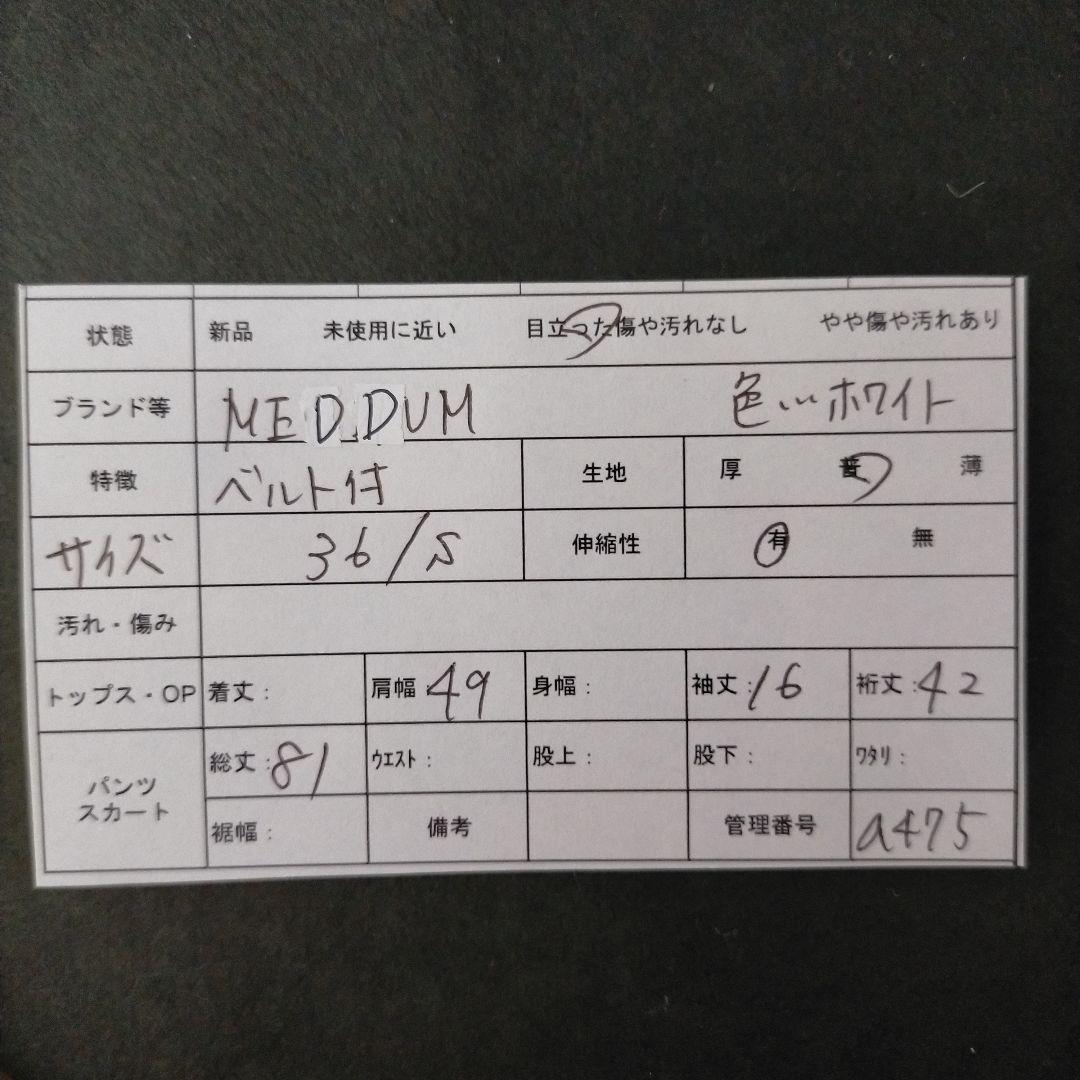 状態 新品 未使用に近い 目立った傷や汚れなし やや傷や汚れあり
ブランド等 MED.DUM 色いホワイト
特徴 ベルト付 生地 厚 普 薄
サイズ 36/S 伸縮性 有 無
汚れ・傷み
トップス・OP 着丈: 肩幅 49 身幅: 袖丈:16 裄丈:42
パンツ スカート 総丈:81 ウエスト: 股上: 股下: ワタリ:
裾幅: 備考 管理番号 a475